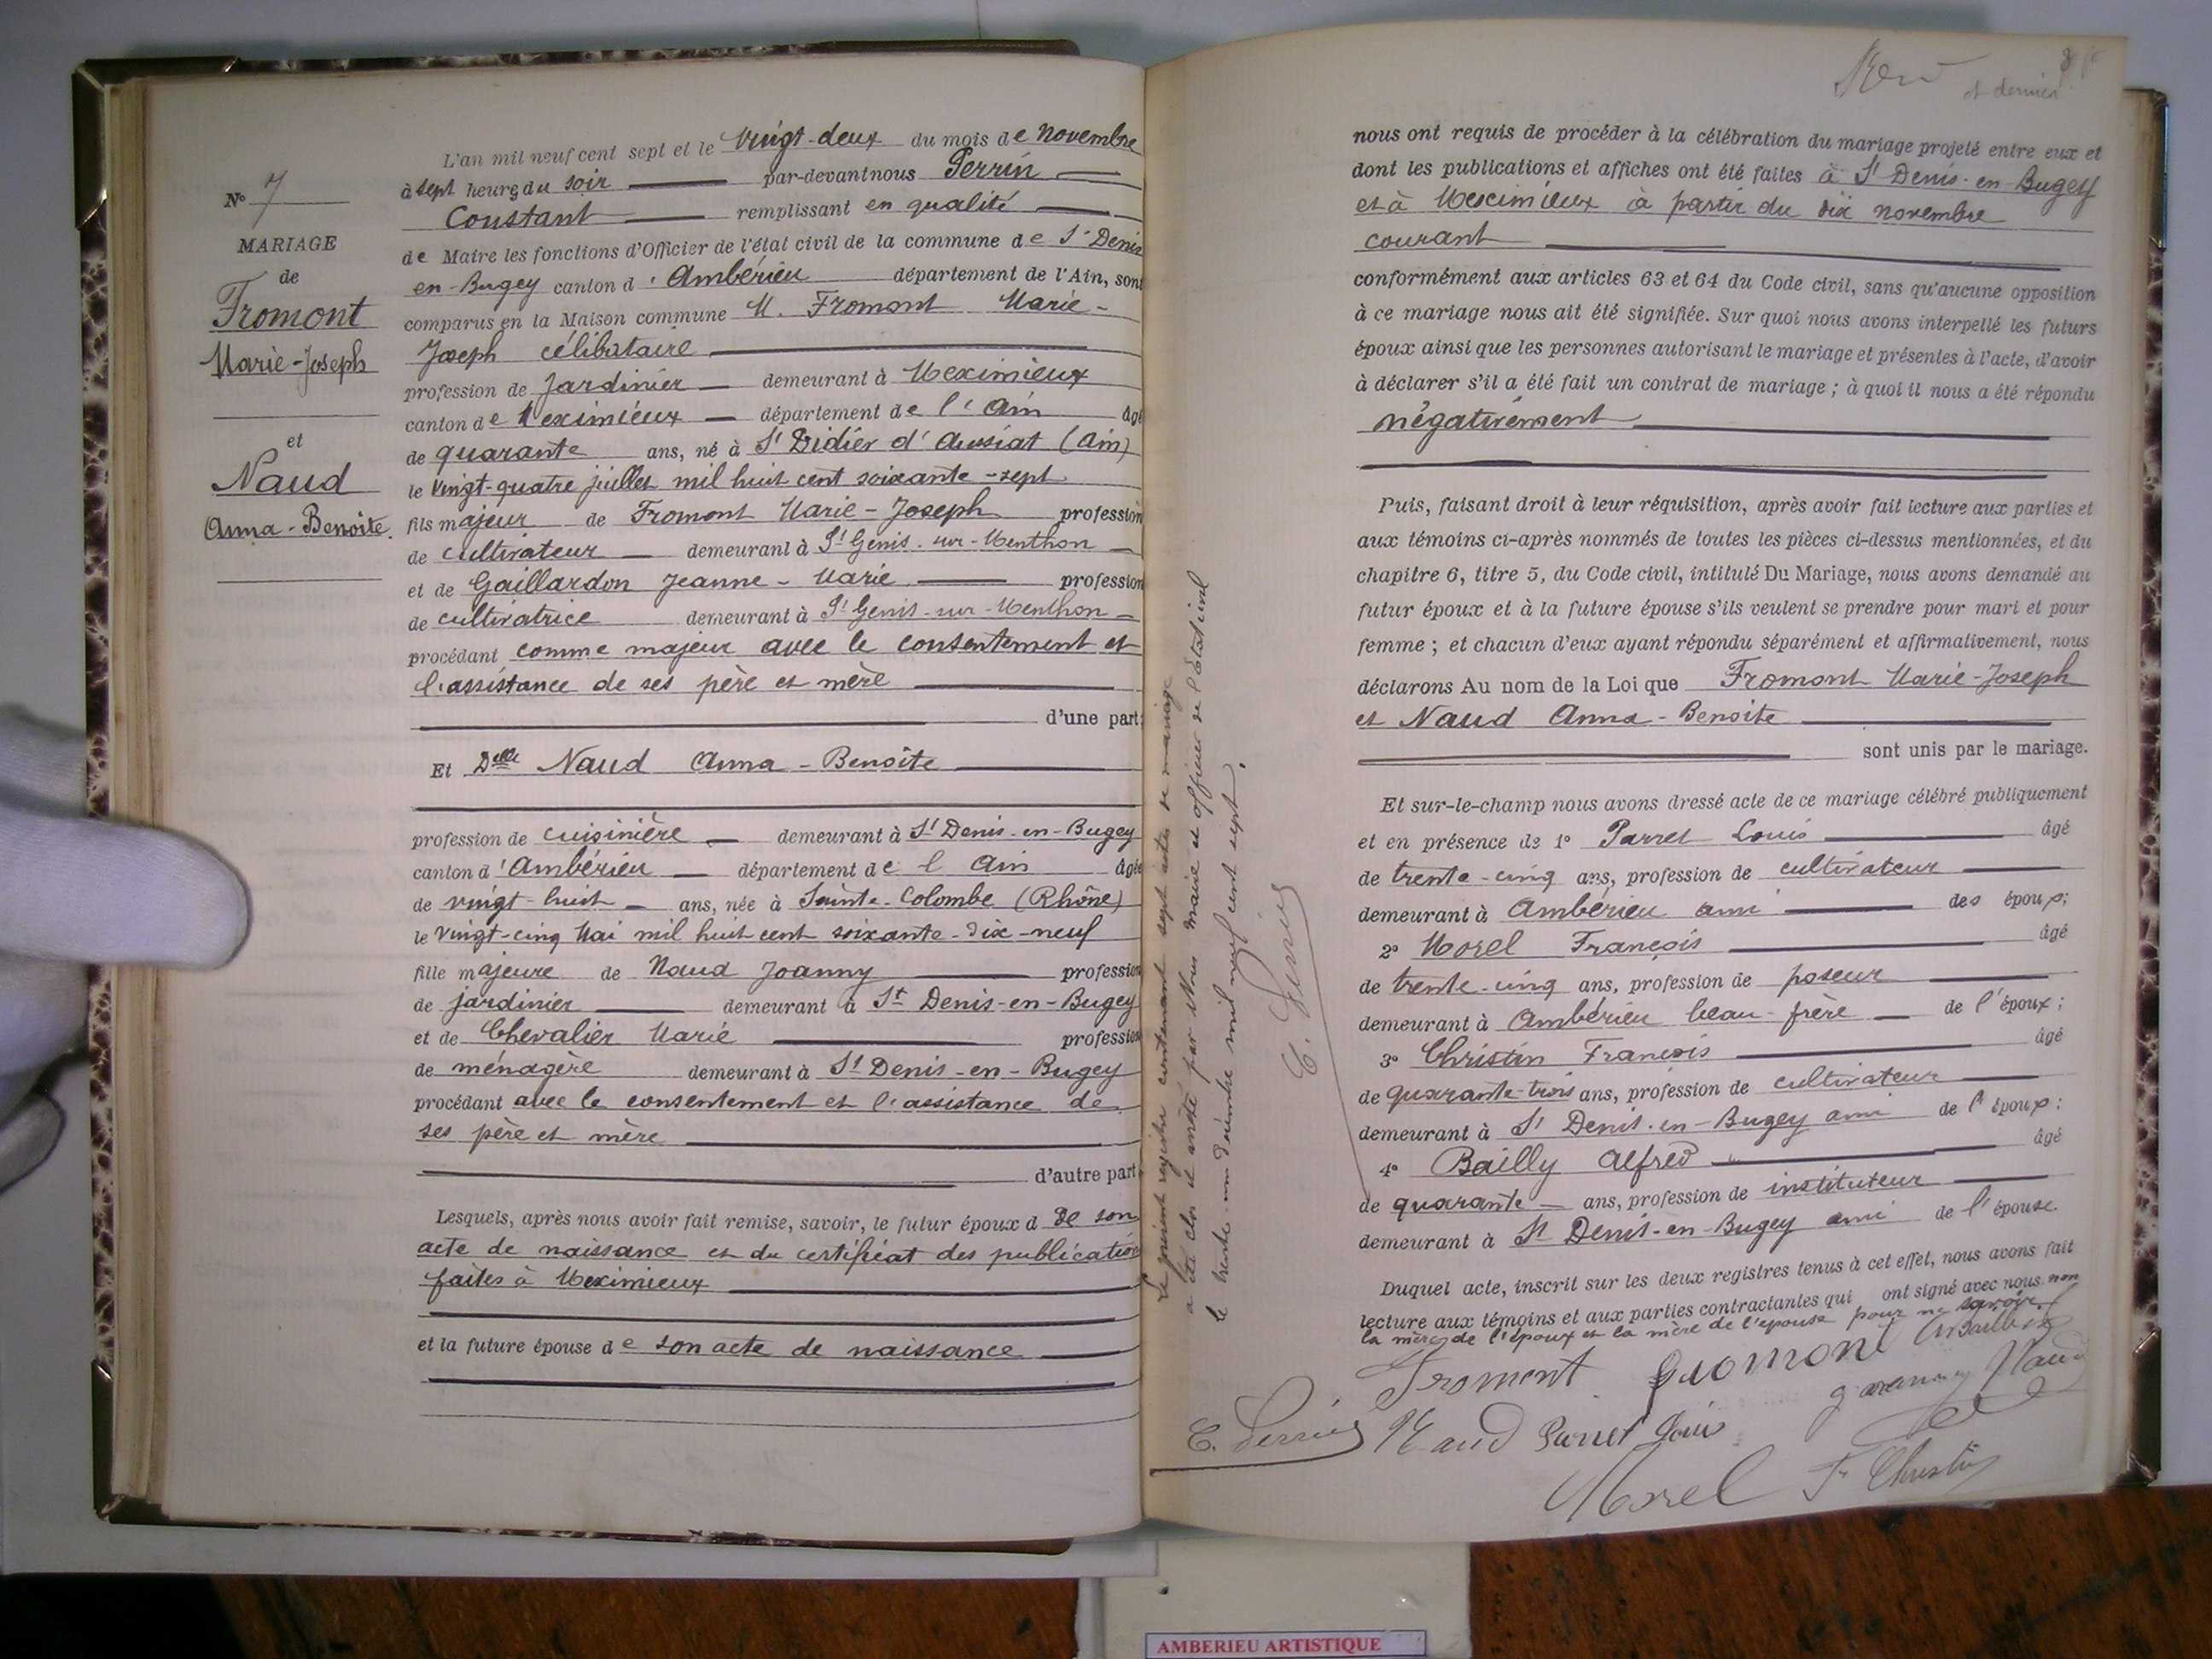 N° 7
MARIAGE
de
Fromont
Marie-Joseph
et
Naud
Anna-Benoite.
L'an mil neuf cent sept et le vingt-deux du mois de novembre
à sept heures du soir par-devant nous Perrin
Constant remplissant en qualité
de Maire les fonctions d'Officier de l'état civil de la commune de St Denis
en-Bugey canton d'Ambérieu département de l'Ain, sont
comparus en la Maison commune M. Fromont Marie-
Joseph célibataire
profession de jardinier demeurant à Meximieux
canton de Meximieux département de l'Ain âgé
de quarante ans, né à St Didier d'Aussiat (Ain)
le vingt-quatre juillet mil huit cent soixante-sept
fils majeur de Fromont Marie-Joseph profession
de cultivateur demeurant à St Genis-sur-Menthon
et de Gaillardon Jeanne-Marie profession
de cultivatrice demeurant à St Genis-sur-Menthon
procédant comme majeur avec le consentement et
l'assistance de ses père et mère
d'une part;
Et Delle Naud Anna-Benoîte
profession de cuisinière demeurant à St Denis-en-Bugey
canton d'Ambérieu département de l Ain âgée
de vingt-huit ans, née à Sainte-Colombe (Rhône)
le vingt-cinq Mai mil huit cent soixante-dix-neuf
fille majeure de Naud Joanny profession
de jardinier demeurant à St Denis-en-Bugey
et de Chevalier Marie profession
de ménagère demeurant à St Denis-en-Bugey
procédant avec le consentement et l'assistance de
ses père et mère
d'autre part
Lesquels, après nous avoir fait remise, savoir, le futur époux d de son
acte de naissance et du certificat des publication
faites à Meximieux
et la future épouse de son acte de naissance
Le présent registre contenant sept actes de mariage
a été clos et arrêté par Nous maire et officier de l'état civil
le trente-un décembre mil neuf cent sept.
C. Perrin
et dernier
nous ont requis de procéder à la célébration du mariage projeté entre eux et
dont les publications et affiches ont été faites à St Denis-en-Bugey
et à Meximieux à partir du dix novembre
courant
conformément aux articles 63 et 64 du Code civil, sans qu'aucune opposition
à ce mariage nous ait été signifiée. Sur quoi nous avons interpellé les futurs
époux ainsi que les personnes autorisant le mariage et présentes à l'acte, d'avoir
à déclarer s'il a été fait un contrat de mariage ; à quoi il nous a été répondu
négativement
Puis, faisant droit à leur réquisition, après avoir fait lecture aux parties et
aux témoins ci-après nommés de toutes les pièces ci-dessus mentionnées, et du
chapitre 6, titre 5, du Code civil, intitulé Du Mariage, nous avons demandé au
futur époux et à la future épouse s'ils veulent se prendre pour mari et pour
femme ; et chacun d'eux ayant répondu séparément et affirmativement, nous
déclarons Au nom de la Loi que Fromont Marie-Joseph
et Naud Anna-Benoite
sont unis par le mariage.
Et sur-le-champ nous avons dressé acte de ce mariage célébré publiquement
et en présence de 1° Parret Louis âgé
de trente-cinq ans, profession de cultivateur
demeurant à Ambérieu ami des époux;
2° Morel François âgé
de trente-cinq ans, profession de poseur
demeurant à Ambérieu beau-frère de l'époux;
3° Christin François âgé
de quarante-trois ans, profession de cultivateur
demeurant à St Denis-en-Bugey ami de l'époux:
4° Bailly Alfred âgé
de quarante ans, profession de instituteur
demeurant à St Denis-en-Bugey ami de l'épouse.
Duquel acte, inscrit sur les deux registres tenus à cet effet, nous avons fait
lecture aux témoins et aux parties contractantes qui ont signé avec nous non
la mère de l'époux et la mère de l'épouse pour ne savoir.
Fromont Fromont ABailly
Joanny Naud
C. Perrin Naud Parret Louis
Morel F. Christin
AMBERIEU ARTISTIQUE